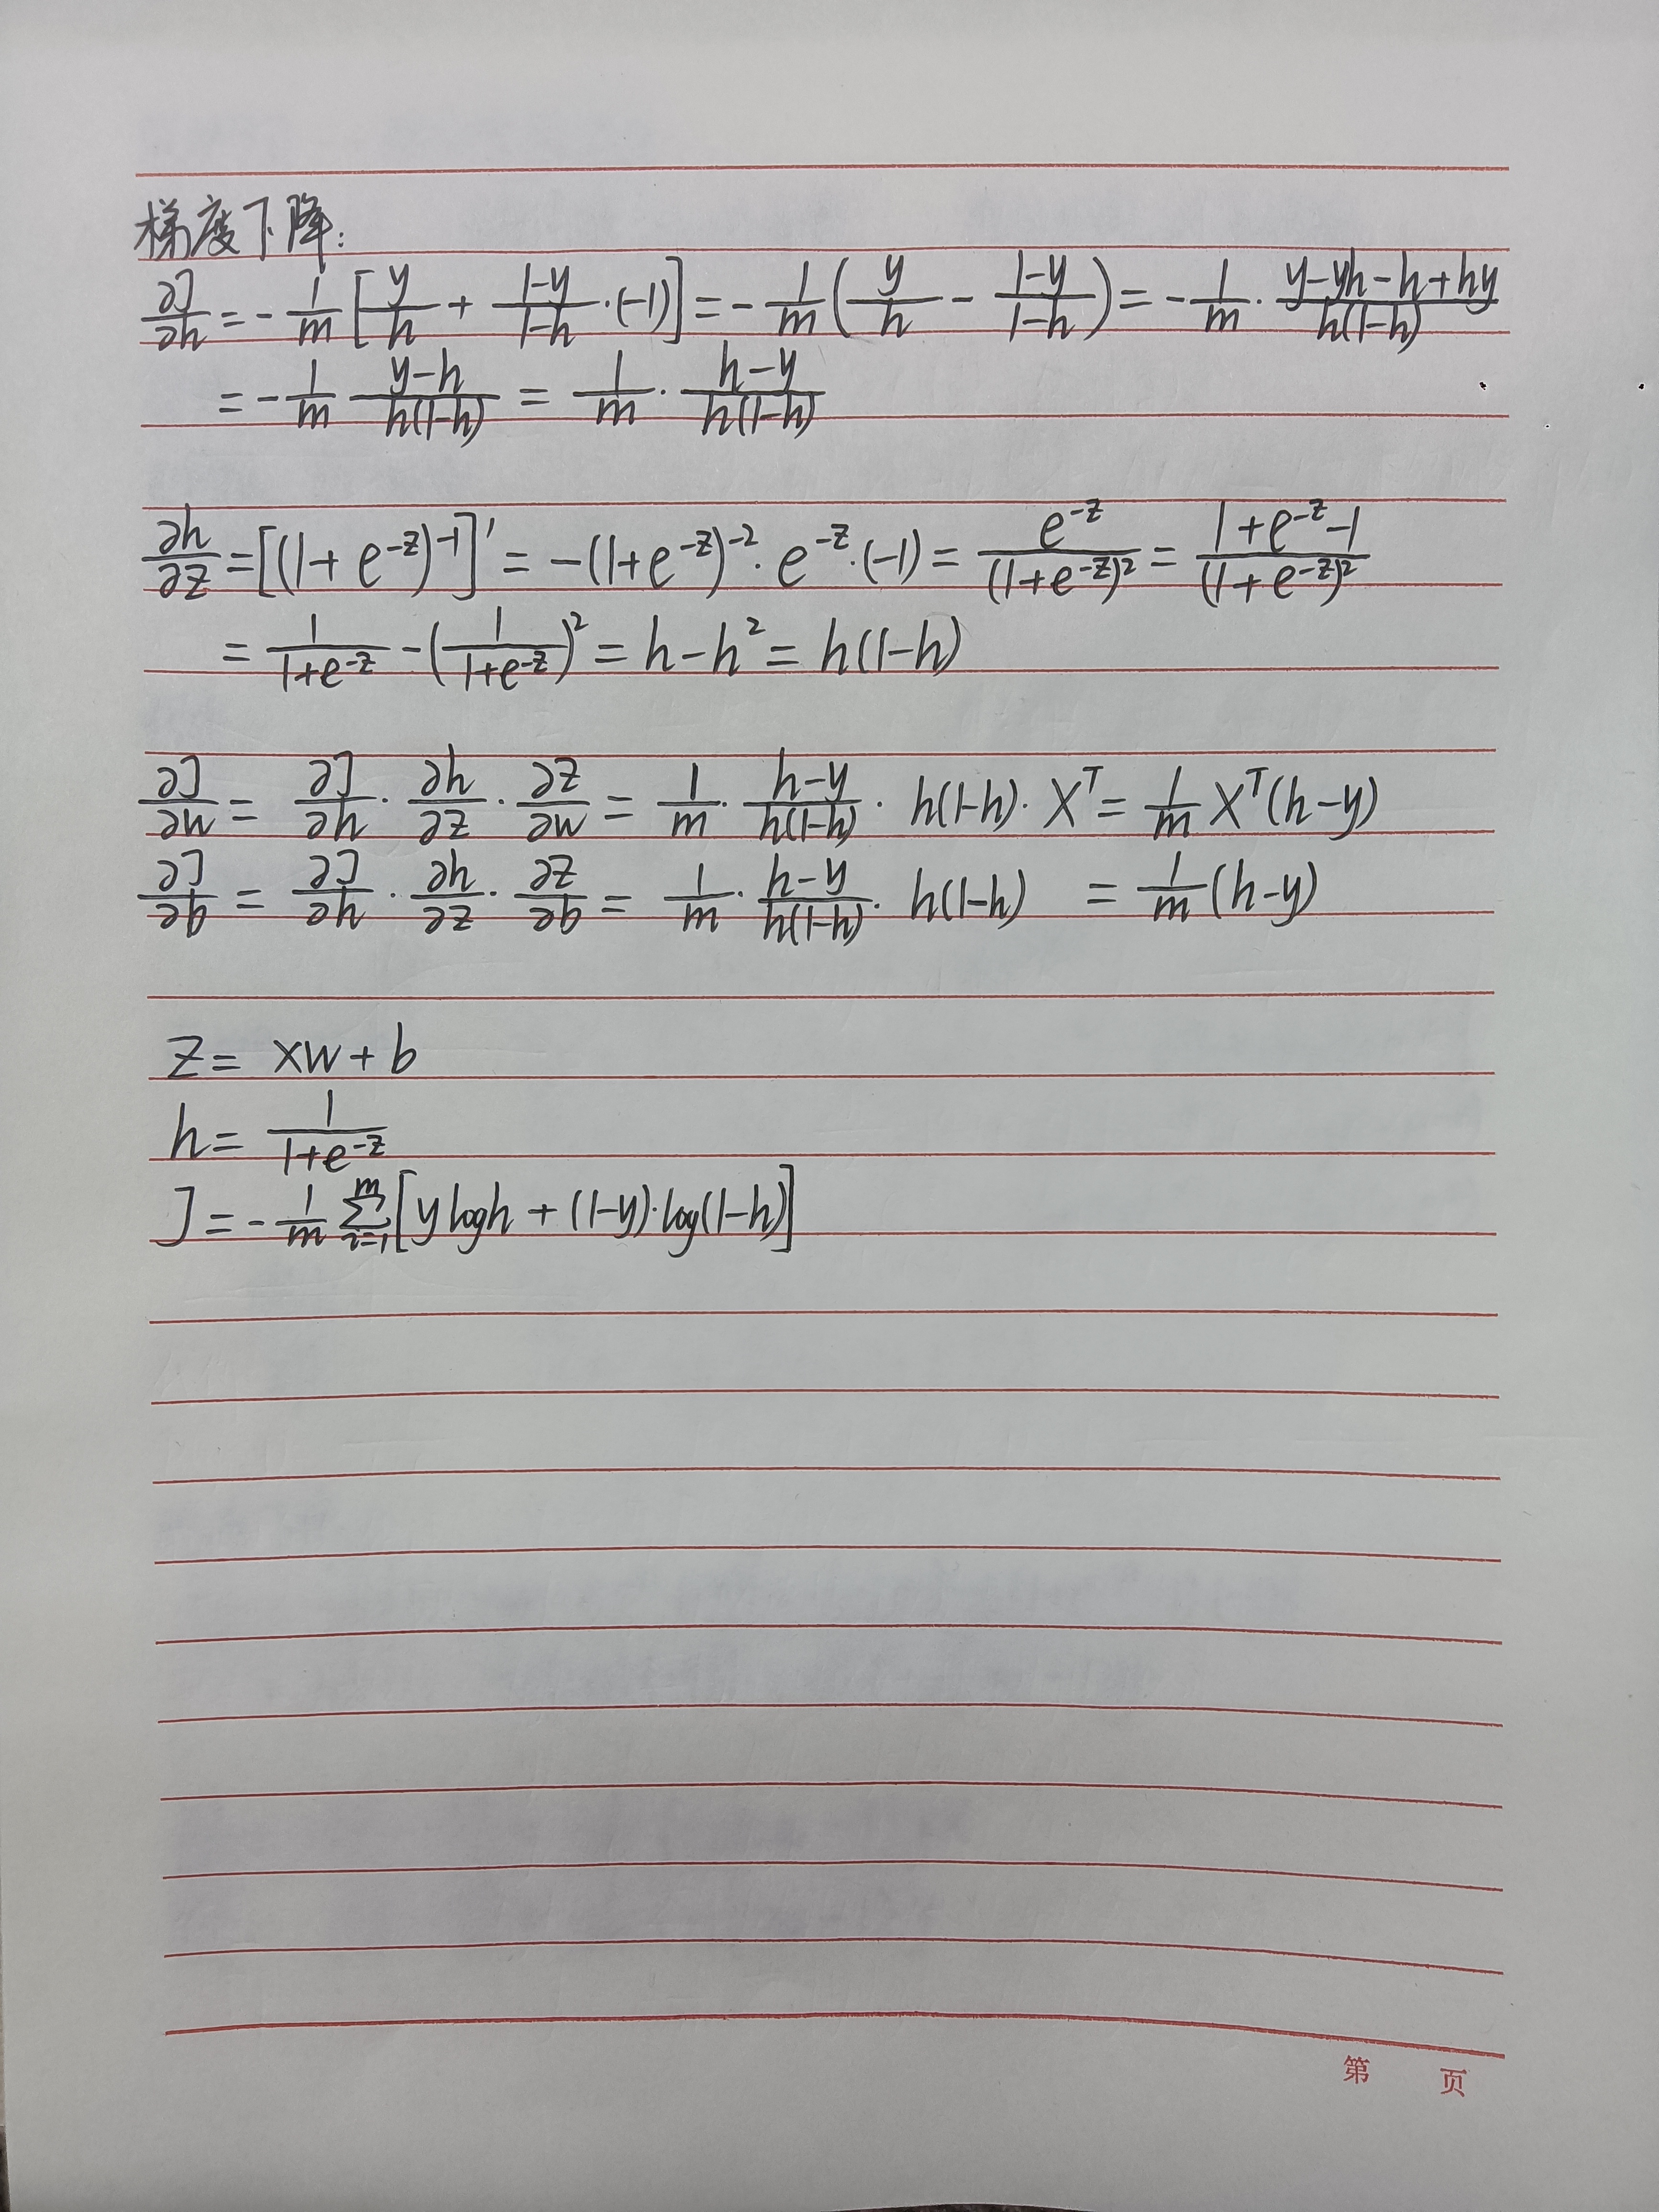 梯度下降:
∂J/∂h = -1/m [y/h + (1-y)/(1-h)·(-1)] = -1/m (y/h - (1-y)/(1-h)) = -1/m · (y-yh-h+hy)/(h(1-h))
= -1/m (y-h)/(h(1-h)) = 1/m · (h-y)/(h(1-h))
∂h/∂z = [(1+e^{-z})^{-1}]' = -(1+e^{-z})^{-2} · e^{-z} · (-1) = e^{-z}/(1+e^{-z})^2 = (1+e^{-z}-1)/(1+e^{-z})^2
= 1/(1+e^{-z}) - (1/(1+e^{-z}))^2 = h-h^2 = h(1-h)
∂J/∂w = ∂J/∂h · ∂h/∂z · ∂z/∂w = 1/m · (h-y)/(h(1-h)) · h(1-h) · X^T = 1/m X^T(h-y)
∂J/∂b = ∂J/∂h · ∂h/∂z · ∂z/∂b = 1/m · (h-y)/(h(1-h)) · h(1-h) = 1/m (h-y)
z = xw + b
h = 1/(1+e^{-z})
J = -1/m ∑_{i=1}^{m} [y log h + (1-y)·log(1-h)]
第 页